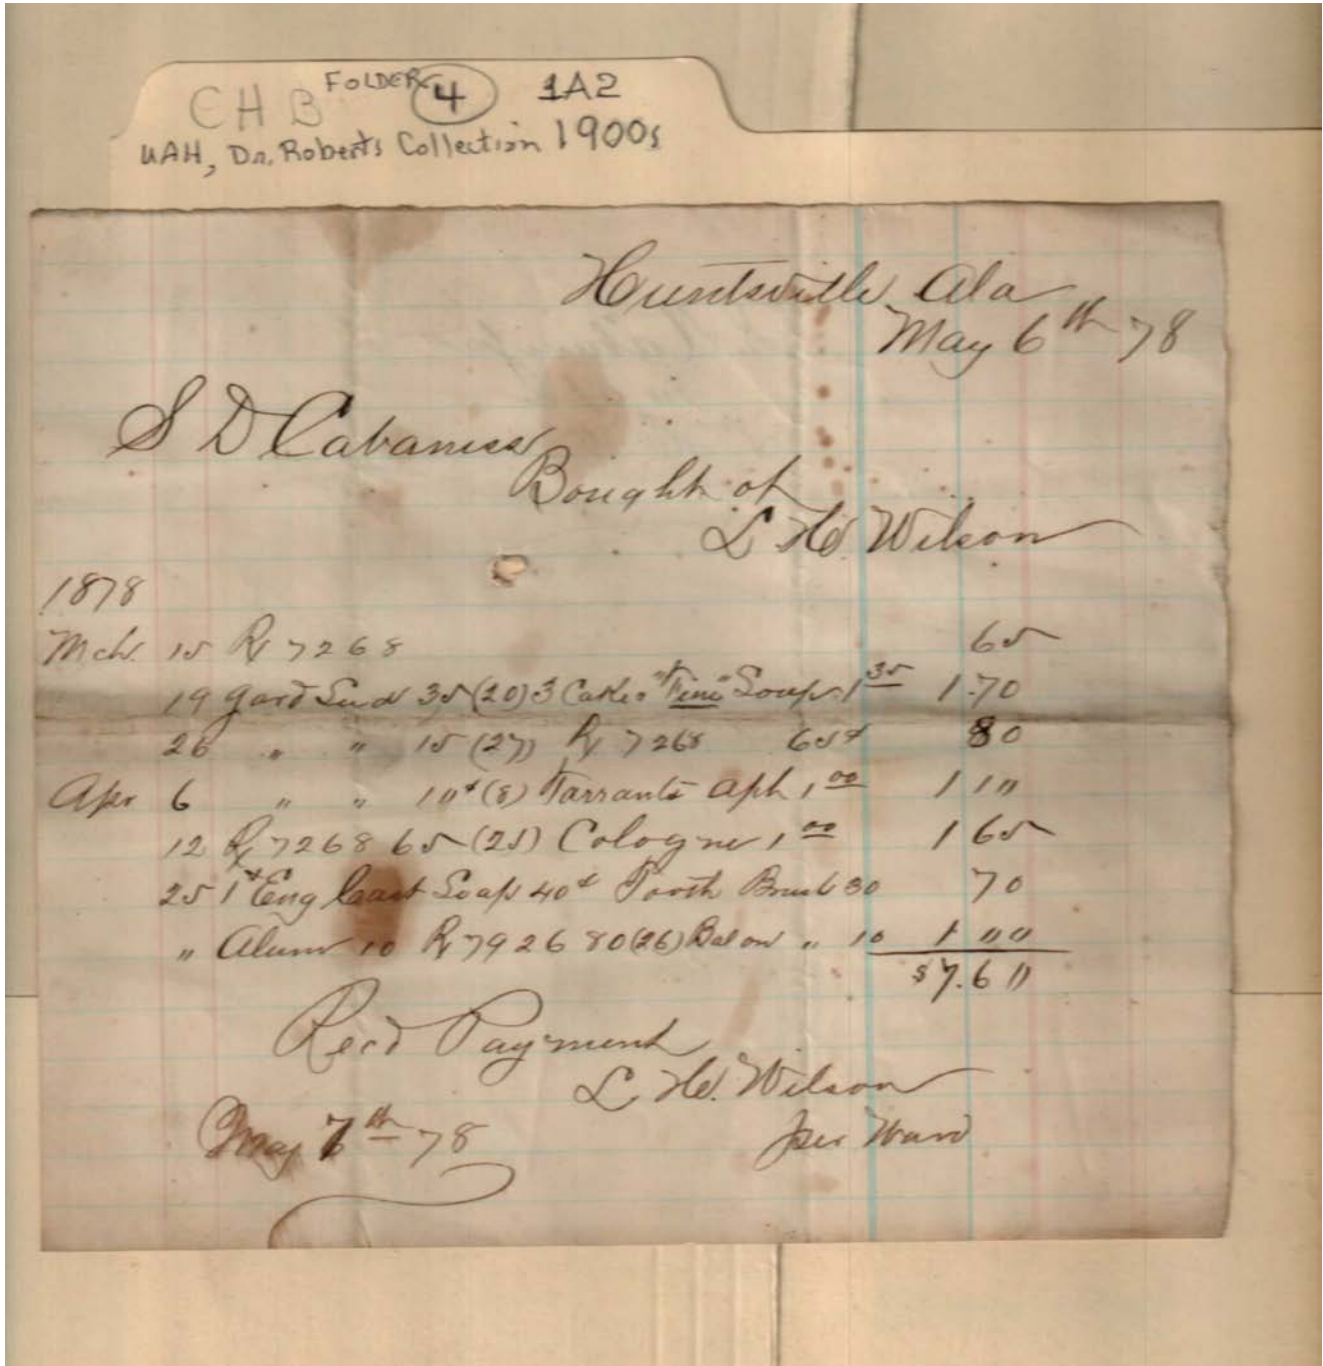 CHB FOLDER 4 1A2
UAH, Dr. Roberts Collection 1900s
Huntsville Ala
May 6th 78
S D Cabaniss
Bought of
L H Wilson
1878
Mch. 15 Rx 7268 65
19 Gard Seed 35 (20) 3 Cakes "Fine" Soap 1 35 1.70
26 " " 15 (27) Rx 7268 65¢ 80
Apr 6 " " 10¢ (8) Tarrants Aph 1 00 1 10
12 Rx 7268 65 (25) Cologne 1 00 1 65
25 1 Eng Soap 40¢ Tooth Brush 30 70
" Alum 10 Rx 7926 80 (26) " 10 1 00
$7.60
Recd Payment
L H. Wilson
May 7th 78 per Ward